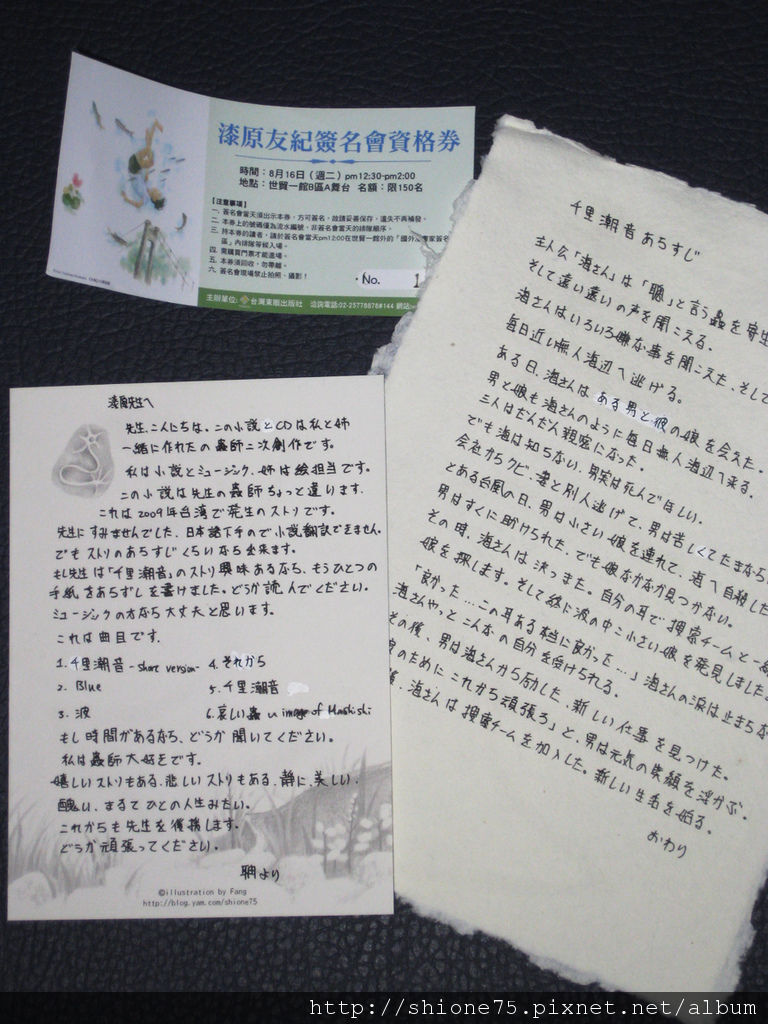 漆原友紀簽名會資格券
時間：8月16日（週二）pm12:30-pm2:00
地點：世貿一館B區A舞台 名額：限150名
【注意事項】
一、簽名會當天須出示本券，方可簽名，故請妥善保存，遺失不再補發。
二、本券上的號碼僅為流水編號，非簽名會當天的排隊順序。
三、持本券的讀者，請於簽名會當天pm12:00在世貿一館外的「國外漫畫家簽名
區」內排隊等候入場。
四、需購買門票才能進場。
五、本券須回收，勿帶離。
六、簽名會現場禁止拍照、攝影！
No. 1
主辦單位：台灣東販出版社 洽詢電話:02-25778878#144 網站:
千里潮音あらすじ
主人公「海さん」は「聰」と言う蟲を寄生
そして遠い遠いの声を聞こえる。
海さんはいろいろ嫌な事を聞こえた、そして
毎日近い無人海辺へ逃げる。
ある日、海さんはある男と彼の娘を会えた。
男と娘も海さんのように毎日無人海辺へ来る。
三人はだんだん親密になった。
でも海は知らない、男実は死んでほしい。
会社からクビ、妻と別人逃げて、男は苦しくてたまなら
とある台風の日、男は小さい娘を連れて、海へ自殺した
男はすぐに助けられた、でも娘なかなか見つかない。
その時、海さんは決っまた。自分の耳で搜索チームと一緒
娘を探します。そして終に波の中に小さい娘を発見しました
「良かった…この耳ある本当に良かった…」海さんの涙は止まらな
海さんやっとこんなの自分を受けられる。
その後、男は海さんから励した、新しい仕事を見つけた。
のためにこれから頑張ろ」と、男は元気の笑顔を浮かぶ。
後、海さんは搜索チームを加入した。新しい生活を始る。
おわり
漆原先生へ
先生、こんにちは、この小説とCDは私と姉
一緒に作れたの蟲師二次創作です。
私は小説とミュージック、姉は絵担当です。
この小説は先生の蟲師ちょっと違います。
これは2009年台湾で発生のストリです。
先生にすみませんでした、日本語下手ので小説翻訳できません。
でもストリのあらすじくらいなら出来ます。
もし先生は「千里潮音」のストリ興味あるなら、もうひとつの
手紙をあらすじを書けました。どうか読んでください。
ミュージックの方なら大丈夫と思います。
これは曲目です.
1. 千里潮音 -short version- 4. それから
2. Blue 5. 千里潮音
3. 波 6. 哀しい蟲 in image of Mushishi
もし時間があるなら、どうか聞いてください。
私は蟲師大好きです。
嬉しいストリもある、悲しいストリもある、静に、美しい、
醜い、まるでひとの人生みたい。
これからも先生を後援します。
どうか頑張ってください。
より
©illustration by Fang
http://blog.yam.com/shione75
http://shione75.pixnet.net/album